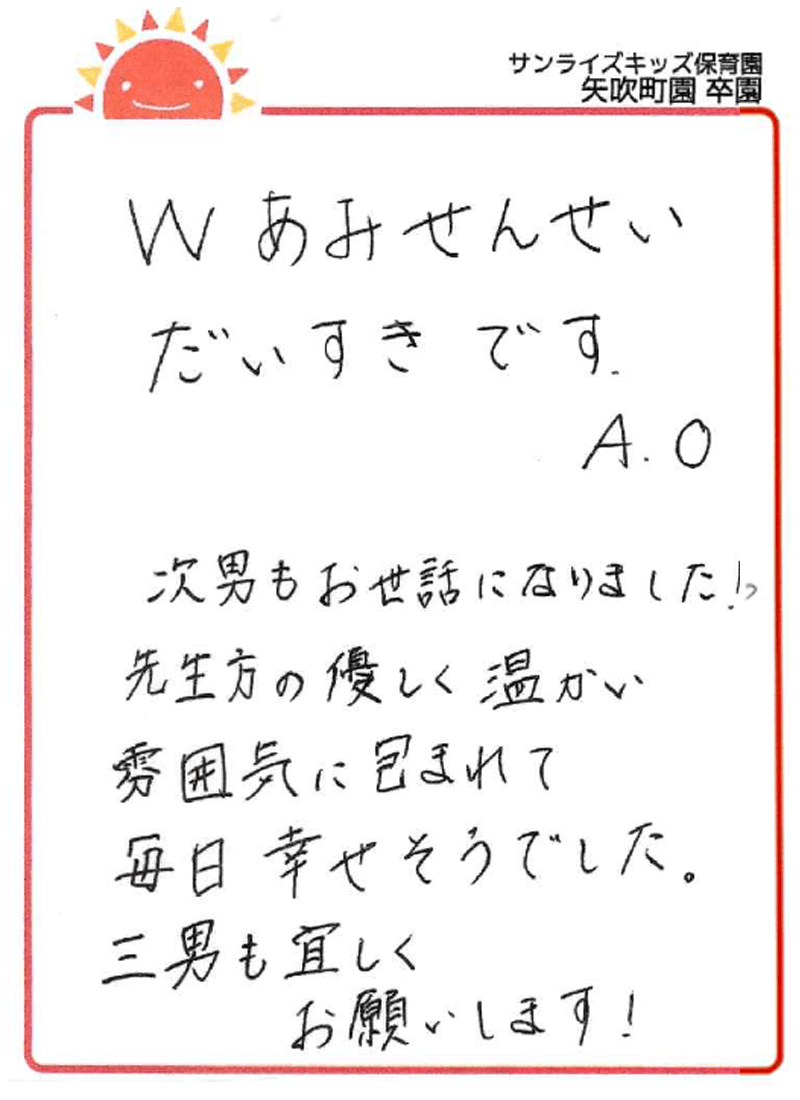 サンライズキッズ保育園
矢吹町園 卒園
W あみせんせい
だいすき です.
A. O
次男もお世話になりました!
先生方の優しく温かい
雰囲気に包まれて
毎日 幸せそうでした。
三男も宜しく
お願いします!